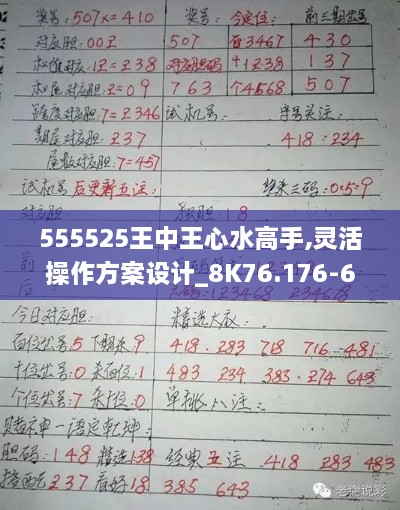 奖号:507X=410 奖号: 今定位: 前三期奖号
对应胆:00Z 507 百3467 430
和值对应:1Z=238 对应胆码 十1238 137
和尾对应胆:Z=09 763 个4568 507
跨度对应胆:7=2346 试机号: 字号关注:
期尾对应胆:237 418:234
尾数对应胆:7=457
试机号后更新五注: 独胆:18
555525王中王心水高手,灵活
操作方案设计_8K76.176-6
今日对应胆: 精选大底:
百位奖号5下期杀9 418.283 718 716.481
十位奖号:0杀百位:1 483 234 383.274 643
个位奖号:7杀十位:0 单挑八注:
赌神单一语定乾坤:
胆码:148精选138 经典五注.418 283 483
237看好18 385 643
老柒说彩